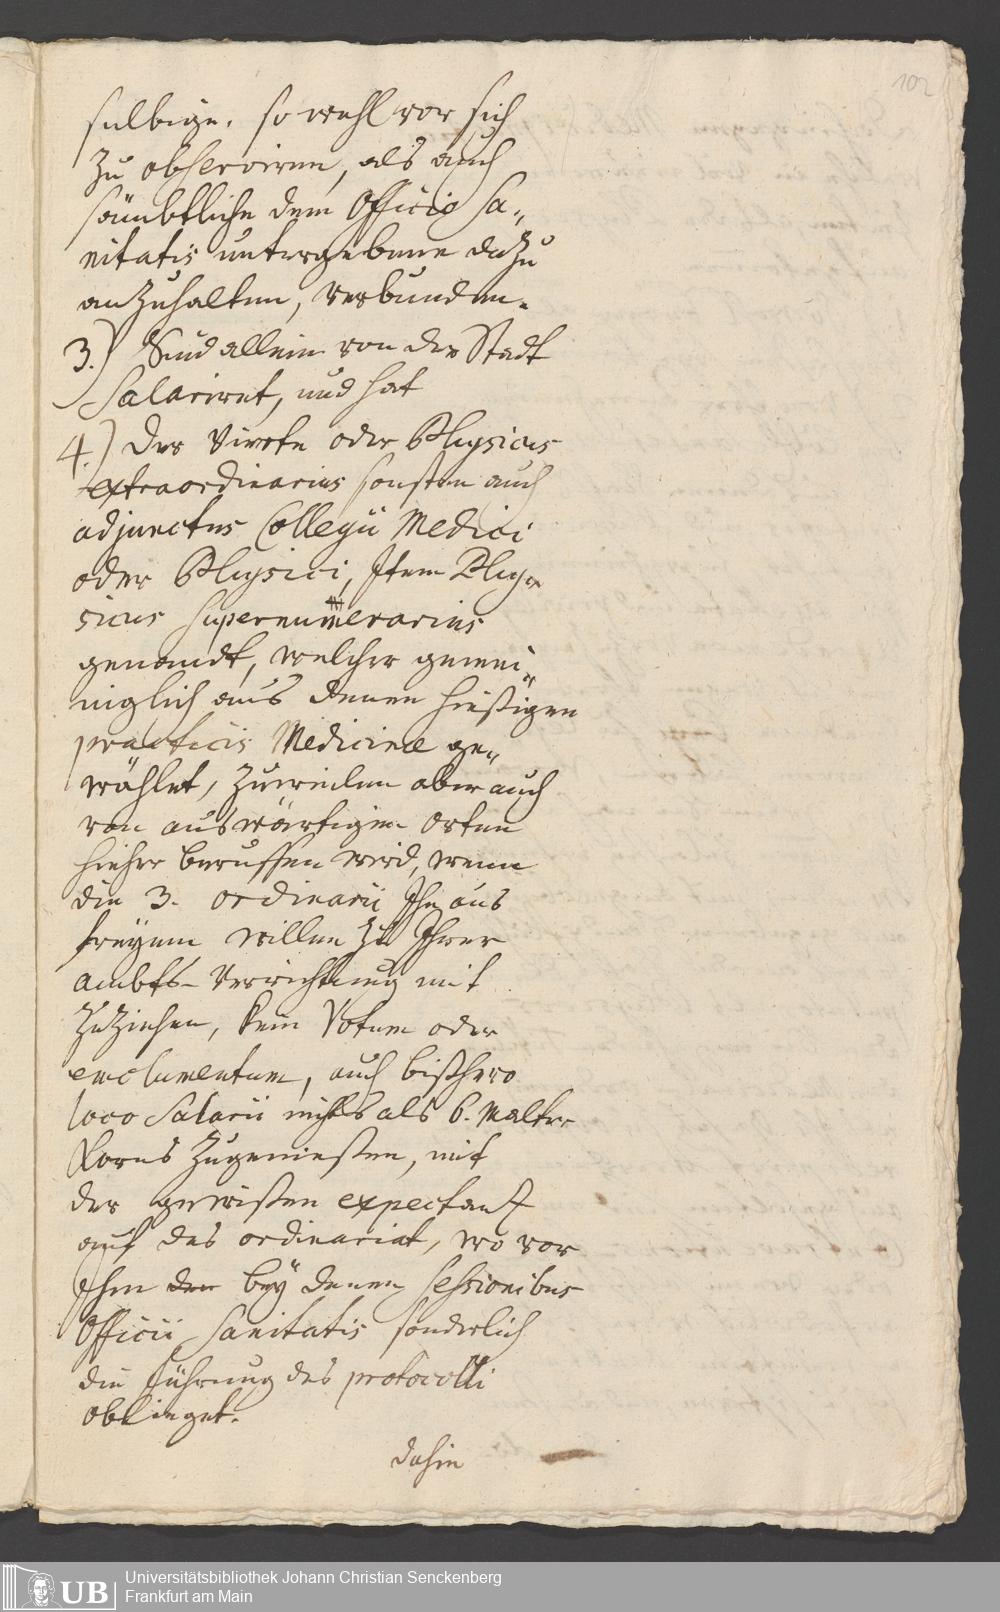 102
selbige. so wohl vor sich
zu observiren, als auch
sämbtliche dem Officio Sa„
nitatis untergebene dazu
anzuhalten, verbunden.
3.) Sind allein von der Stadt
Salariret, und hat
4.) Der Vierte oder Physicus
extraordinarius sonsten auch
adjunctus Collegii Medici
oder Physici, Item Phy„
sicus Supernumerarius
genandt, welcher gemei„
niglich aus denen hießigen
practicis Medicinae ge„
wählet, zuweilen aber auch
von auswärtigen Orten
hieher beruffen wird, wenn
die 3. ordinarii Ihn aus
freyem willen zu Ihrer
ambts-Verrichtung mit
zuziehen, kein Votum oder
emolumentum, auch bißhero
loco Salarii nichts als 6. Malter
Korns zugenießen, mit
der gewißen expectanz
auf das ordinariat, wo vor
Ihm der bey denen Sessionibus
Officii Sanitatis sonderlich
die Führung des protocolli
oblieget.
dahin
UB
Universitätsbibliothek Johann Christian Senckenberg
Frankfurt am Main